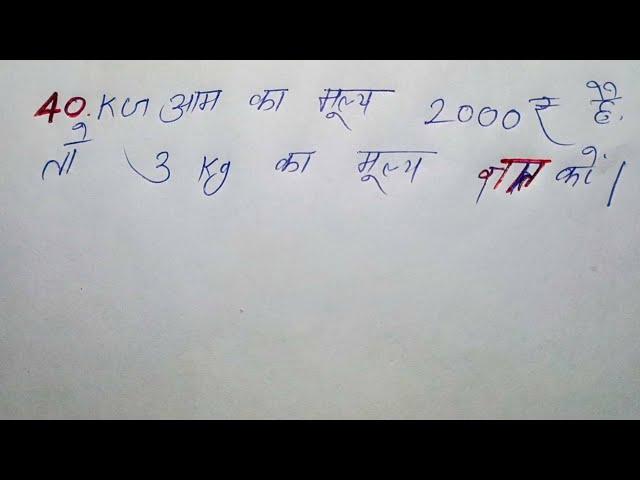 40. KG आम का मूल्य 2000₹ है.
तो 3 Kg का मूल्य ज्ञात करें।